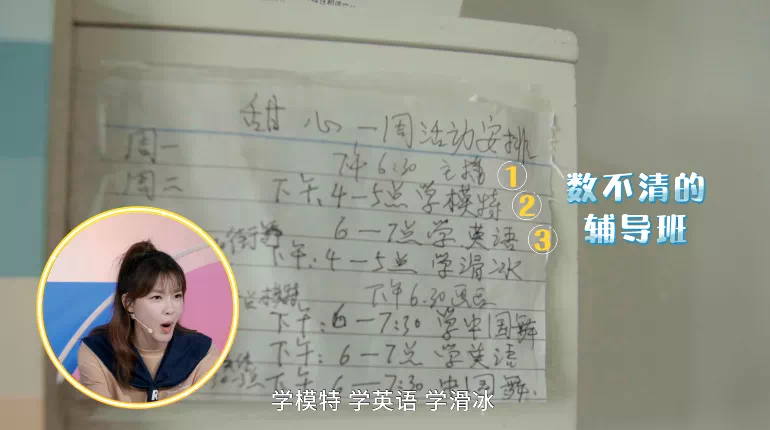 甜心一周活动安排
周一 下午6:30 主持 ①
周二 下午:4-5点学模特 ②
6-7点学英语 ③
下午:4-5点 学滑冰
下午6:30画画
下午:6-7:30 学中国舞
下午:6-7点 学英语
下午 6-7:30 中国舞
数不清的
辅导班
学模特 学英语 学滑冰